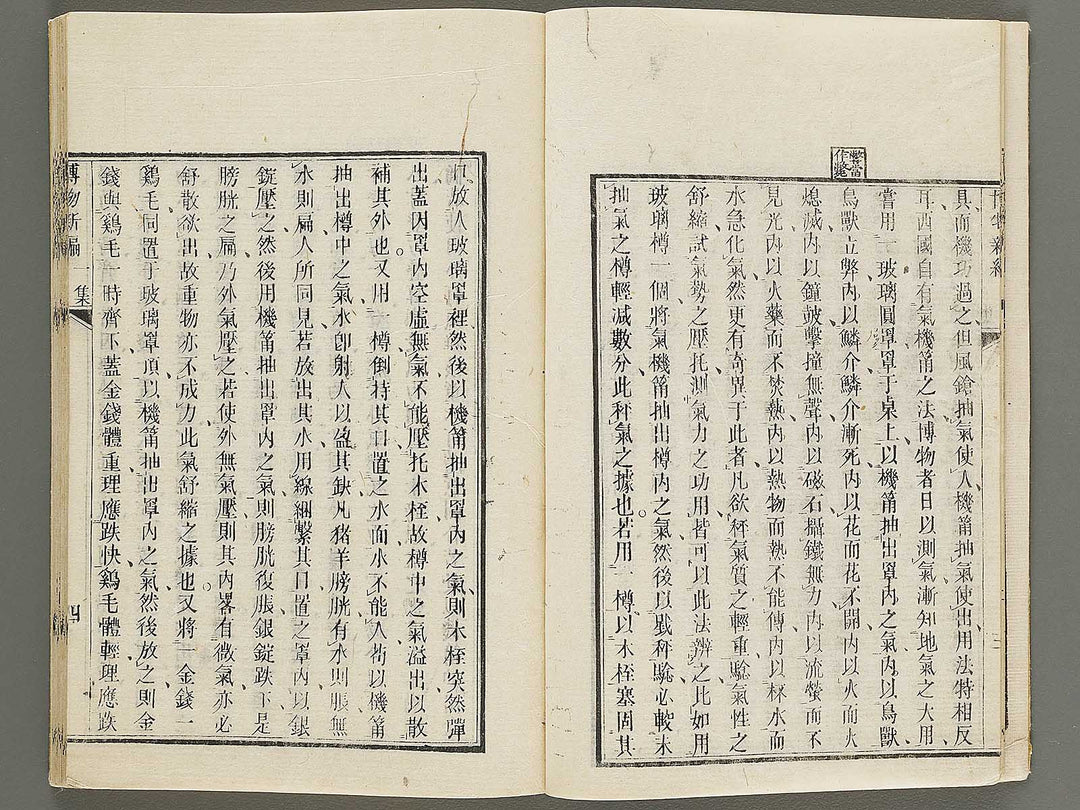 博物新編
具而機功過之但風鎗抽氣使入機筩抽氣使出用法特相反
耳西國自有氣機筩之法博物者日以測氣漸知地氣之大用
嘗用一玻璃圓罩罩于桌上以機筩抽出罩內之氣內以鳥獸
鳥獸立弊內以鱗介鱗介漸死內以花而花不開內以火而火
熄滅內以鐘鼓擊撞無聲內以磁石攝鐵無力內以流螢而不
見光內以火藥而不焚熱內以熱物而熱不能傳內以冧水而
水急化氣然更有奇異于此者凡欲秤氣質之輕重驗氣性之
舒縮試氣勢之壓托測氣力之功用皆可以此法辨之比如用
玻璃樽一個將氣機筩抽出樽內之氣然後以戥秤驗必較未
抽氣之樽輕減數分此秤氣之據也若用一樽以木桎塞固其
弊當
作斃
口放入玻璃罩裡然後以機筩抽出罩內之氣則木桎突然彈
出蓋因罩內空虛無氣不能壓托木桎故樽中之氣溢出以散
補其外也又用一樽倒持其口置之水而水不能入茍以機筩
抽出樽中之氣水卽射入以盈其缺凡猪羊膀胱有水則脹無
水則扁人所同見若放出其水用線綑繫其口置之罩內以銀
錠壓之然後用機筩抽出罩內之氣則膀胱復脹銀錠跌下是
膀胱之扁乃外氣壓之若使外無氣壓則其內畧有微氣亦必
舒散欲出故重物亦不成力此氣舒縮之據也又將一金錢一
鷄毛同置于玻璃罩頂以機筩抽出罩內之氣然後放之則金
錢與鷄毛一時齊下蓋金錢體重理應跌快鷄毛體輕理應跌
博物新編 一集 四